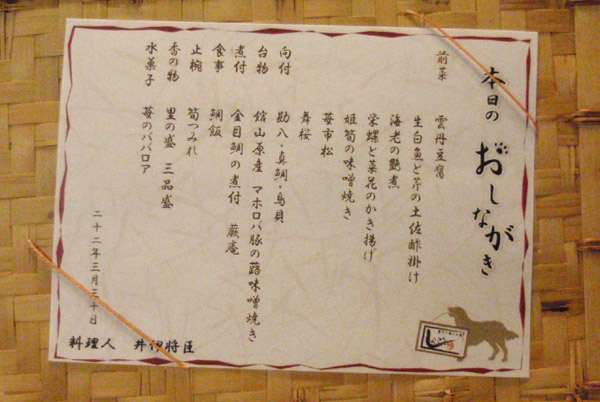 本日の おしながき
前菜
雲丹豆腐
生白魚と芹の土佐酢掛け
海老の艶煮
栄螺と菜花のかき揚げ
姫筍の味噌焼き
苺市松
舞桜
向付 勘八・真鯛・鳥貝
台物 館山原産 マホロバ豚の蕗味噌焼き
煮付 金目鯛の煮付 蕨庵
食事 鯛飯
止椀 筍つみれ
香の物 里の盛 三品盛
水菓子 苺のババロア
二十二年三月三十日
料理人 井伊将臣